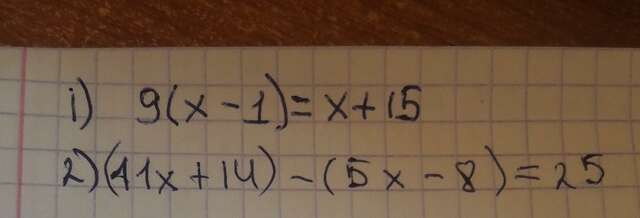 1) 9(x-1)=x+15
2)(11x+14)-(5x-8)=25